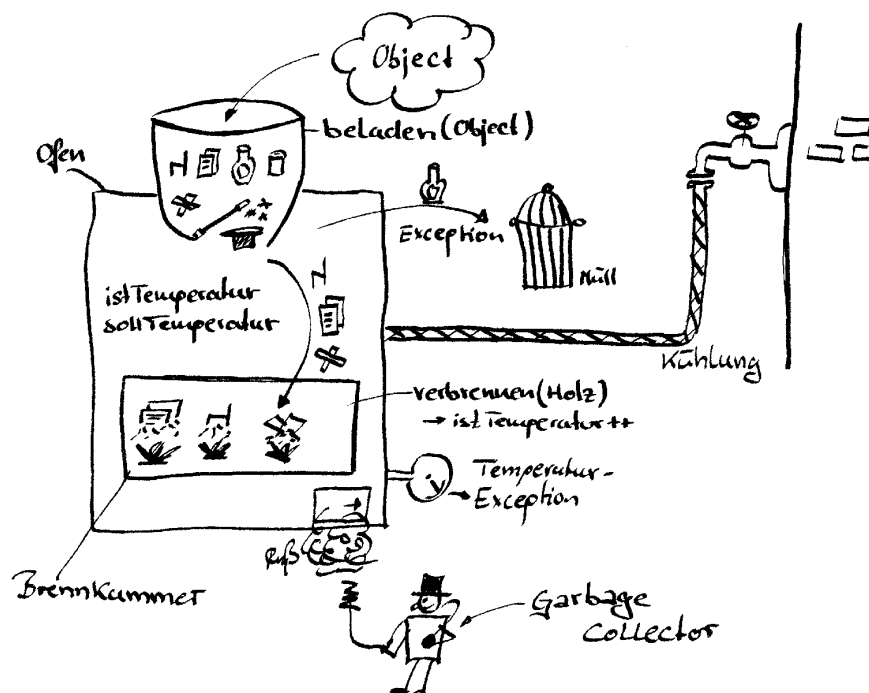 Object
beladen(Object)
Ofen
Exception
Müll
istTemperatur
sollTemperatur
Kühlung
verbrennen(Holz)
→ istTemperatur++
Temperatur-
Exception
Ruß
Brennkammer
Garbage
Collector